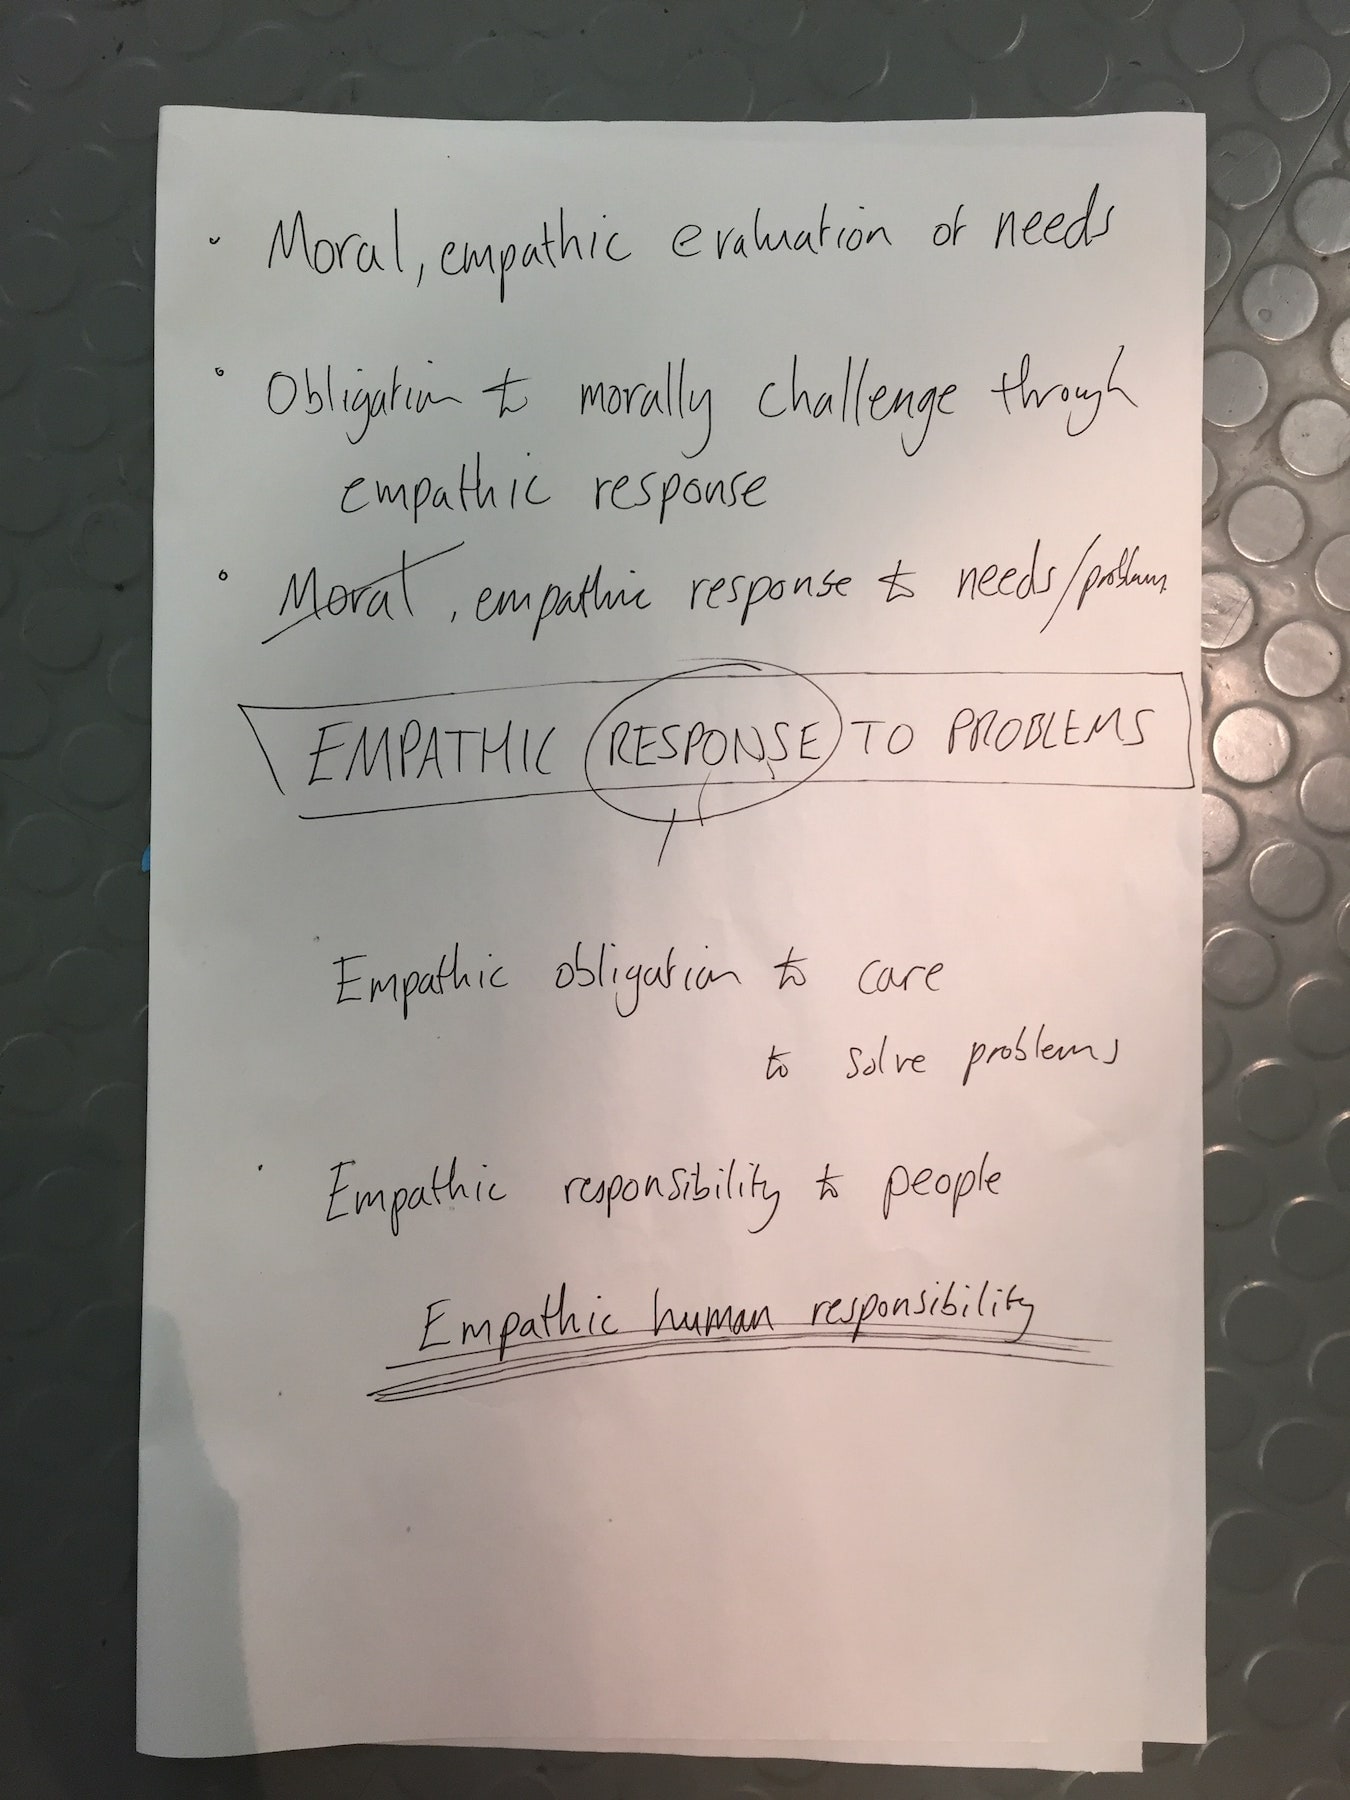 Moral, empathic evaluation of needs
Obligation to morally challenge through
empathic response
Moral, empathic response to needs/problems
EMPATHIC RESPONSE TO PROBLEMS
Empathic obligation to care
to solve problems
Empathic responsibility to people
Empathic human responsibility